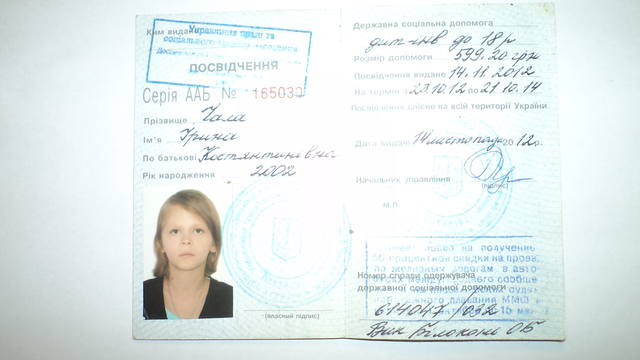 Ким видано
Управління праці та
соціального захисту населення
ПОСВІДЧЕННЯ
Серія ААБ № 165030
Прізвище Чала
Ім'я Ірина
По батькові Костянтинівна
Рік народження 2002
(власний підпис)
Державна соціальна допомога
дит-інв до 18р
Розмір допомоги 599.20 грн
Посвідчення видане 14.11.2012
На термін з 23.10.12 по 21.10.14
Посвідчення дійсне на всій території України
Дата видачі 14 листопада 2012р.
Начальник управління
(підпис)
м.п.
имеет право на получение
50 процентной скидки на проезд
по железным дорогам в авто-
Номер справи одержувача
державної соціальної допомоги
614047 032
Вик Білоконь ОБ